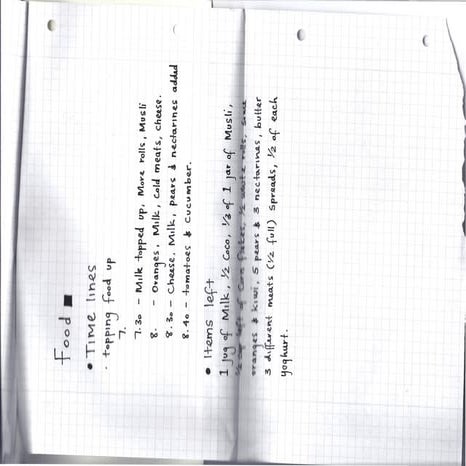 Food
• Time lines
· topping food up
7.
7.30 - Milk topped up, More rolls, Musli
8. - Oranges, Milk, cold meats, cheese.
8.30 - Cheese, Milk, pears & nectarines added
8.40 - tomatoes & cucumber.
• Items left
1 jug of Milk, 1/2 Coco, 1/3 of 1 jar of Musli,
1/2 left of corn flakes, 1/2 white rolls, some
oranges & kiwi, 5 pears & 3 nectarines, butter
3 different meats (1/2 full) spreads, 1/2 of each
yoghurt.